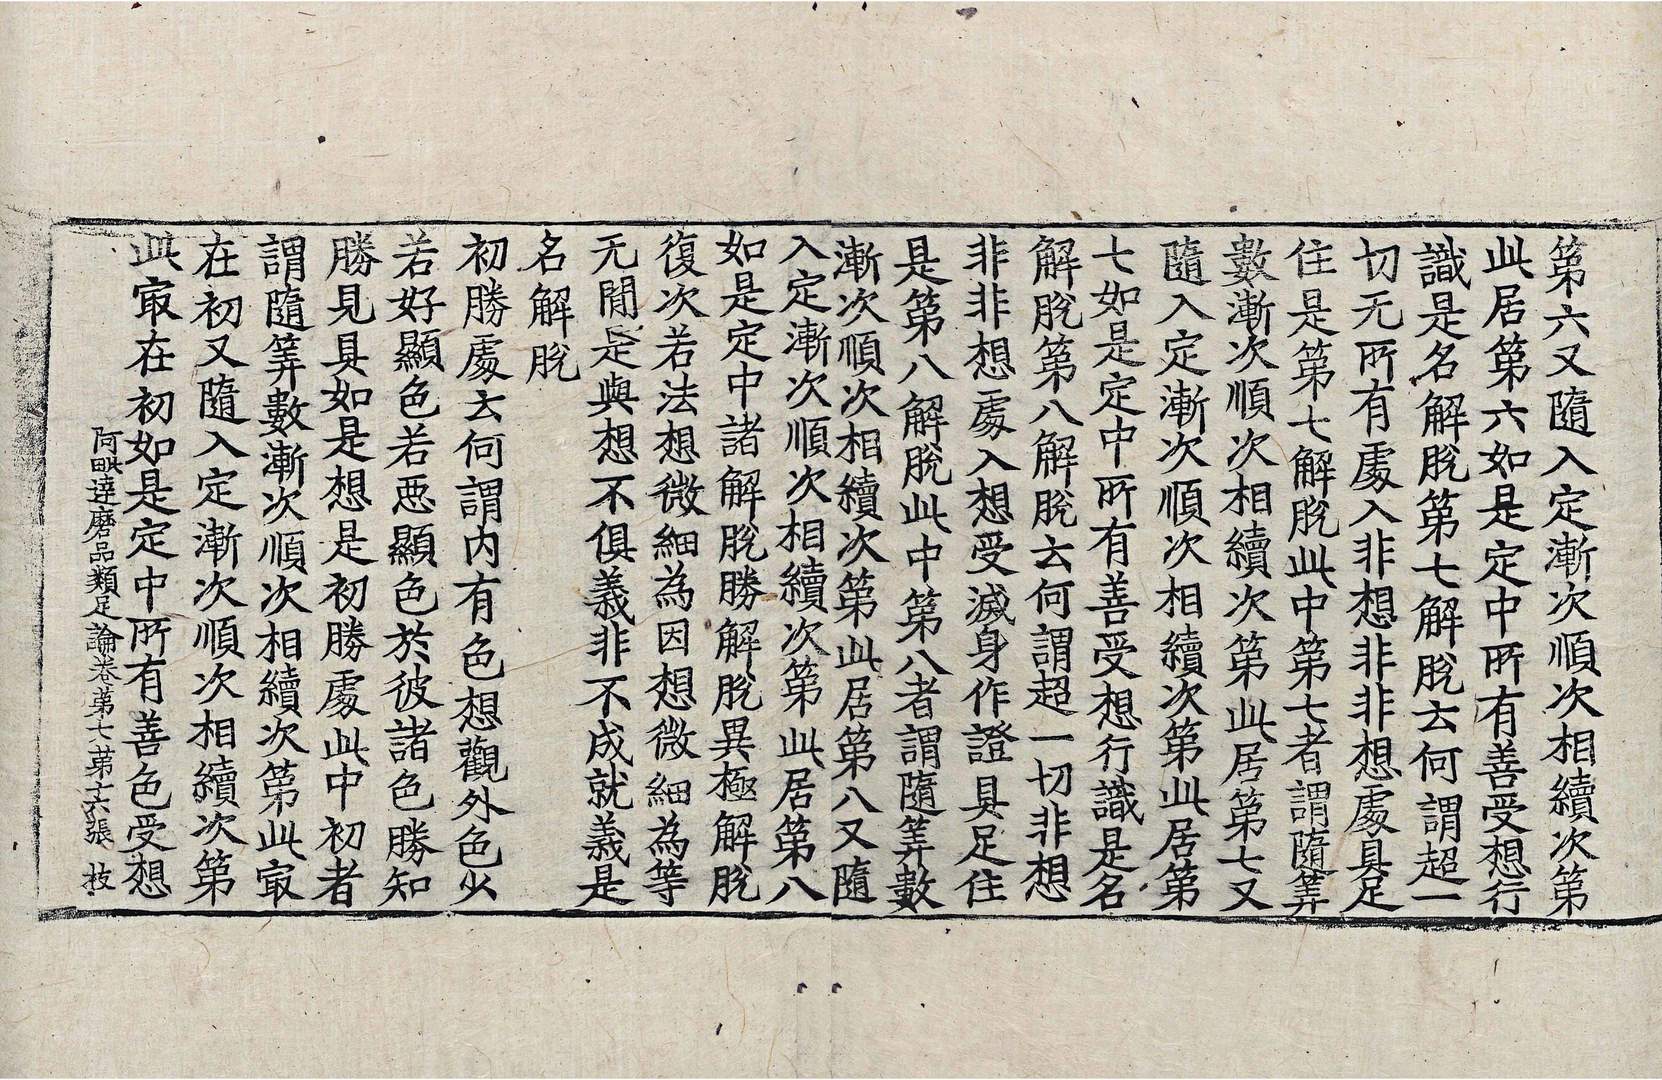 第六又隨入定漸次順次相續次第
此居第六如是定中所有善受想行
識是名解脫第七解脫云何謂超一
切无所有處入非想非非想處具足
住是第七解脫此中第七者謂隨筭
數漸次順次相續次第此居第七又
隨入定漸次順次相續次第此居第
七如是定中所有善受想行識是名
解脫第八解脫云何謂超一切非想
非非想處入想受滅身作證具足住
是第八解脫此中第八者謂隨筭數
漸次順次相續次第此居第八又隨
入定漸次順次相續次第此居第八
如是定中諸解脫勝解脫異極解脫
復次若法想微細為因想微細為等
无閒是與想不俱義非不成就義是
名解脫
初勝處云何謂内有色想觀外色少
若好顯色若惡顯色於彼諸色勝知
勝見具如是想是初勝處此中初者
謂隨筭數漸次順次相續次第此㝡
在初又隨入定漸次順次相續次第
此㝡在初如是定中所有善色受想
阿毗達磨品類足論卷第七 第十六張 技